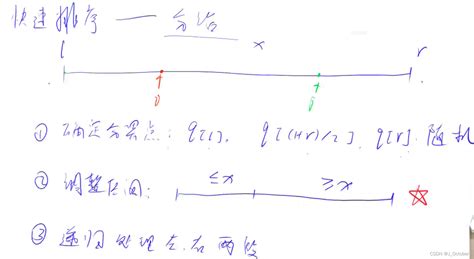 快速排序 —— 分治
x
l r
① 确定分界点: q[l], q[(l+r)/2], q[r], 随机
② 调整区间: ≤x ≥x ☆
③ 递归处理左右两段